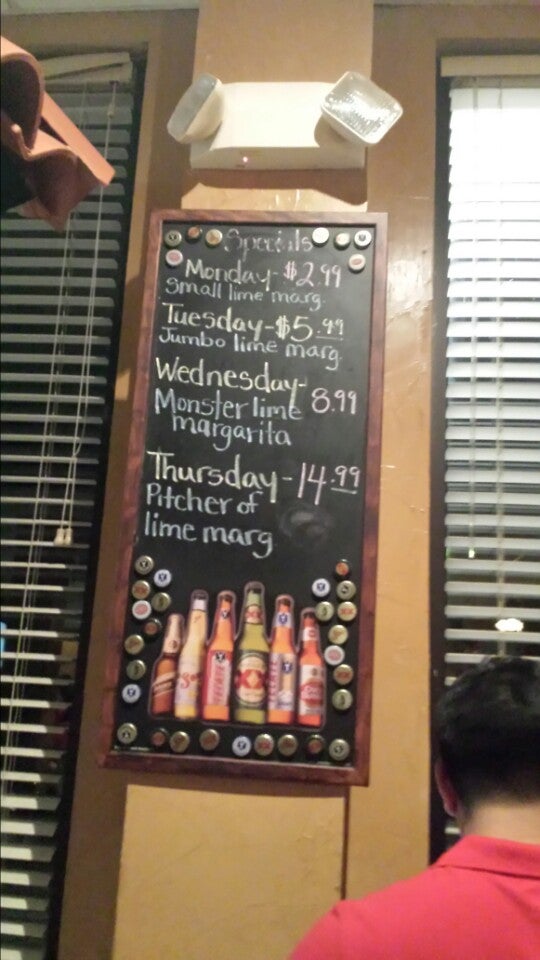 Specials
Monday- $2.99
Small lime marg.
Tuesday-$5.99
Jumbo lime marg.
Wednesday-
Monster lime 8.99
margarita
Thursday-14.99
Pitcher of
lime marg
TECATE
XX
TECATE